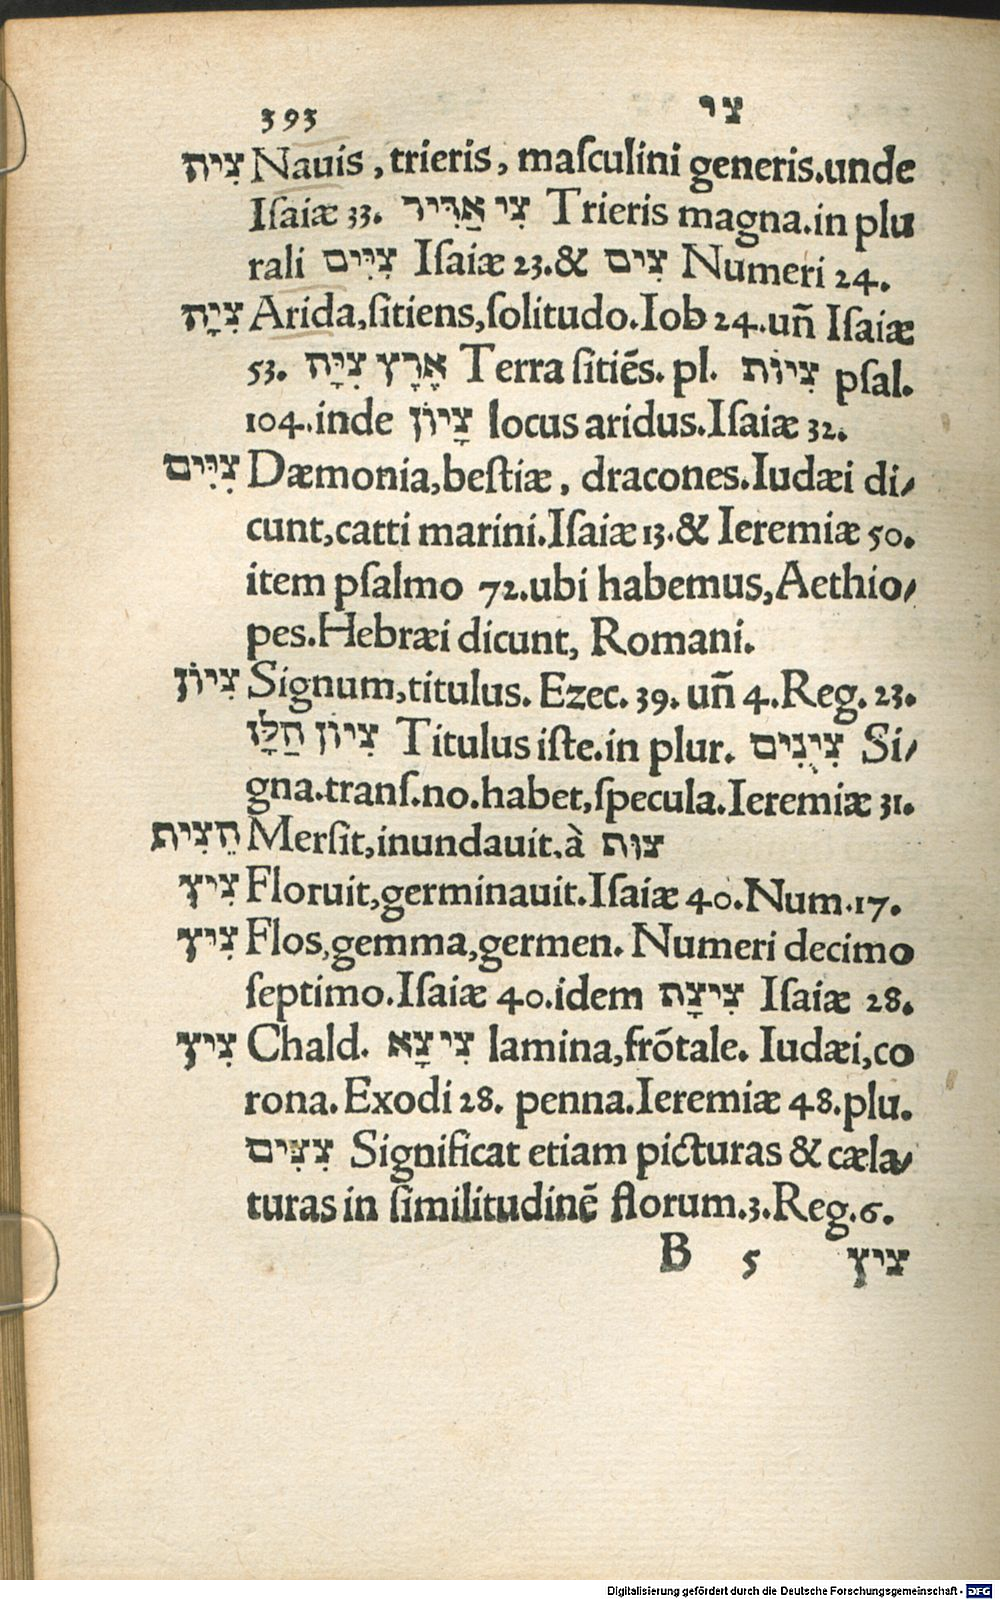 393 צי
צִיה Nauis, trieris, maſculini generis.unde
Iſaiæ 33. צִי אַדִּיר Trieris magna.in plu
rali צִיִּים Iſaiæ 23.& צִים Numeri 24.
צִיָּה Arida,ſitiens,ſolitudo.Iob 24.uñ Iſaiæ
53. אֶרֶץ צִיָּה Terra ſitiēs. pl. צִיּוֹת pſal.
104.inde צָיוֹן locus aridus.Iſaiæ 32.
צִיִּים Dæmonia,beſtiæ, dracones.Iudæi di⸗
cunt,catti marini.Iſaiæ 13.& Ieremiæ 50.
item pſalmo 72.ubi habemus,Aethio⸗
pes.Hebræi dicunt, Romani.
צִיּוֹן Signum,titulus. Ezec. 39. uñ 4.Reg. 23.
צִיוֹן הַלָּז Titulus iſte.in plur. צִיֻנִים Si⸗
gna.tranſ.no.habet,ſpecula.Ieremiæ 31.
הֵצִית Merſit,inundauit.à צות
צִיץ Floruit,germinauit.Iſaiæ 40.Num.17.
צִיץ Flos,gemma,germen. Numeri decimo
ſeptimo.Iſaiæ 40.idem צִיצָה Iſaiæ 28.
צִיץ Chald. צִיצָא lamina,frōtale. Iudæi,co
rona.Exodi 28. penna.Ieremiæ 48.plu.
צִצִּים Significat etiam picturas & cæla⸗
turas in ſimilitudinē florum.3.Reg.6.
B 5 ציץ
Digitalisierung gefördert durch die Deutsche Forschungsgemeinschaft - DFG